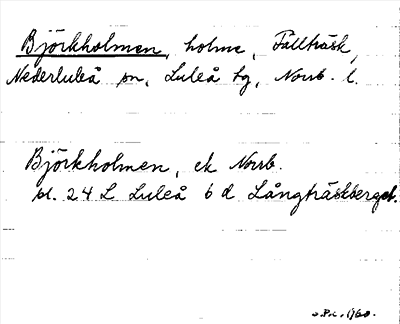 Björkholmen, holme, Fällträsk,
Nederluleå sn, Luleå tg, Norrb. l.
Björkholmen, ek Norrb.
bl. 24 L Luleå 6 d Långträskberget.
1960.